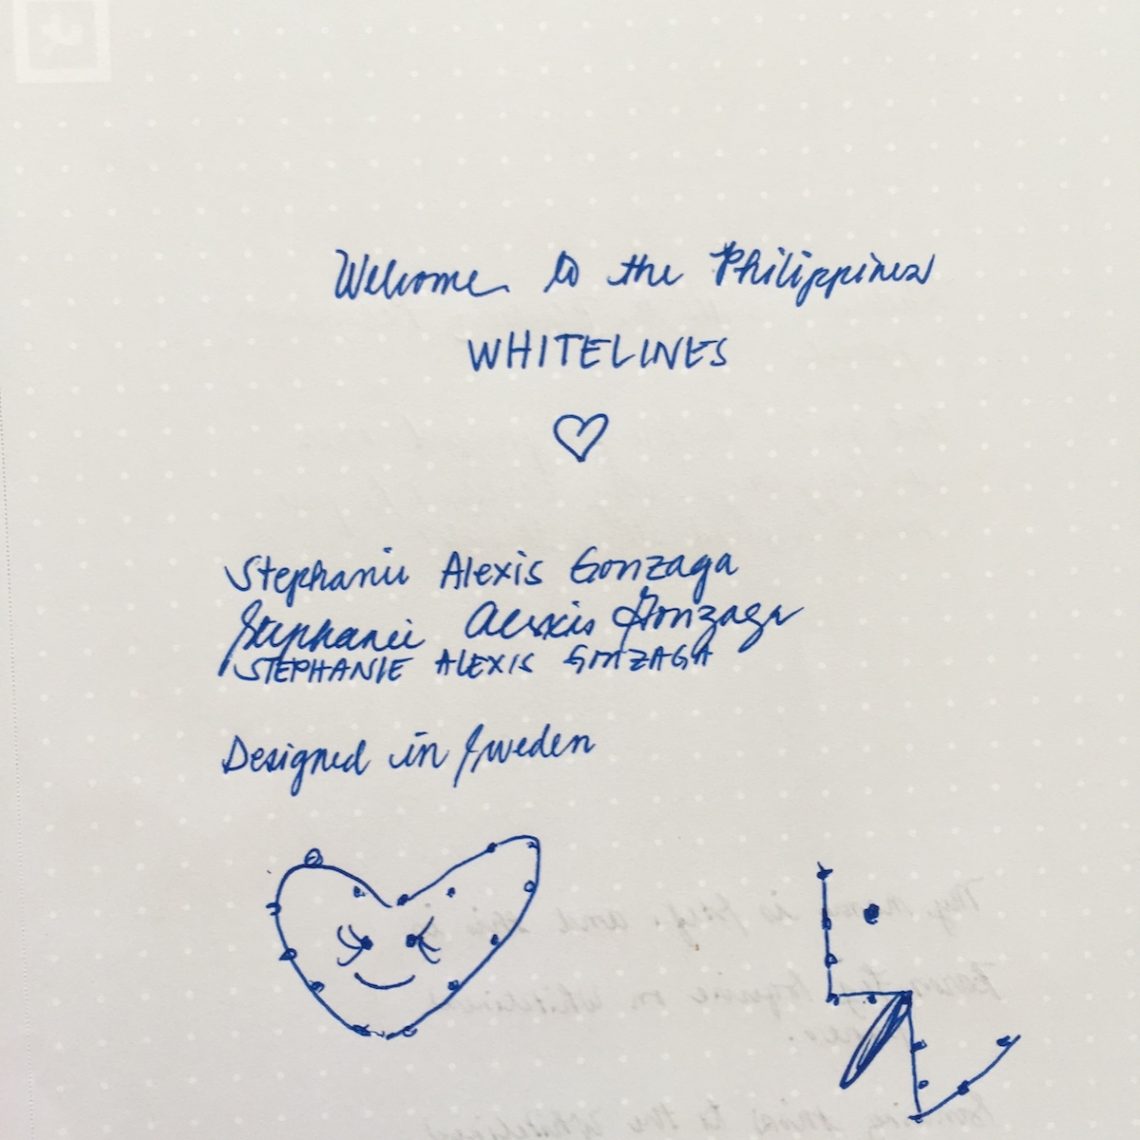 Welcome to the Philippines
WHITELINES
Stephanie Alexis Gonzaga
Stephanie Alexis Gonzaga
STEPHANIE ALEXIS GONZAGA
Designed in Sweden